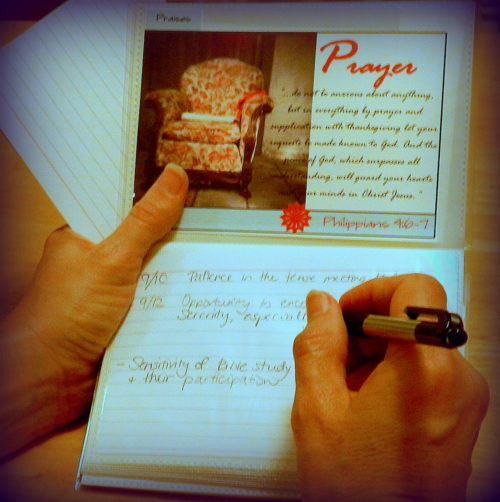 Praises
Prayer
"...do not be anxious about anything,
but in everything by prayer and
supplication with thanksgiving let your
requests be made known to God. And the
peace of God, which surpasses all
understanding, will guard your hearts
minds in Christ Jesus."
Philippians 4:6-7
9/10 Patience in the tense meeting
9/12 Opportunity to
Serenity, especiall
- Sensitivity of Bible study
+ their participation